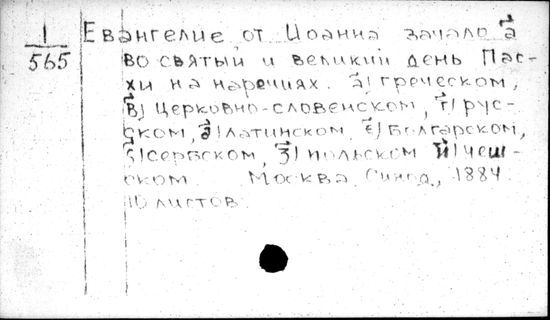 1
565
Евангелие от Иоанна зачало а҃
во святый и великий день Пас-
хи на наречиях. а҃) греческом,
в҃) церковно-словенском, г҃) рус-
ском, д҃) латинском, є҃) Болгарском,
ѕ҃) сербском, з҃) польском и҃) чеш-
ском. Москва, Синод., 1884.
10 листов.